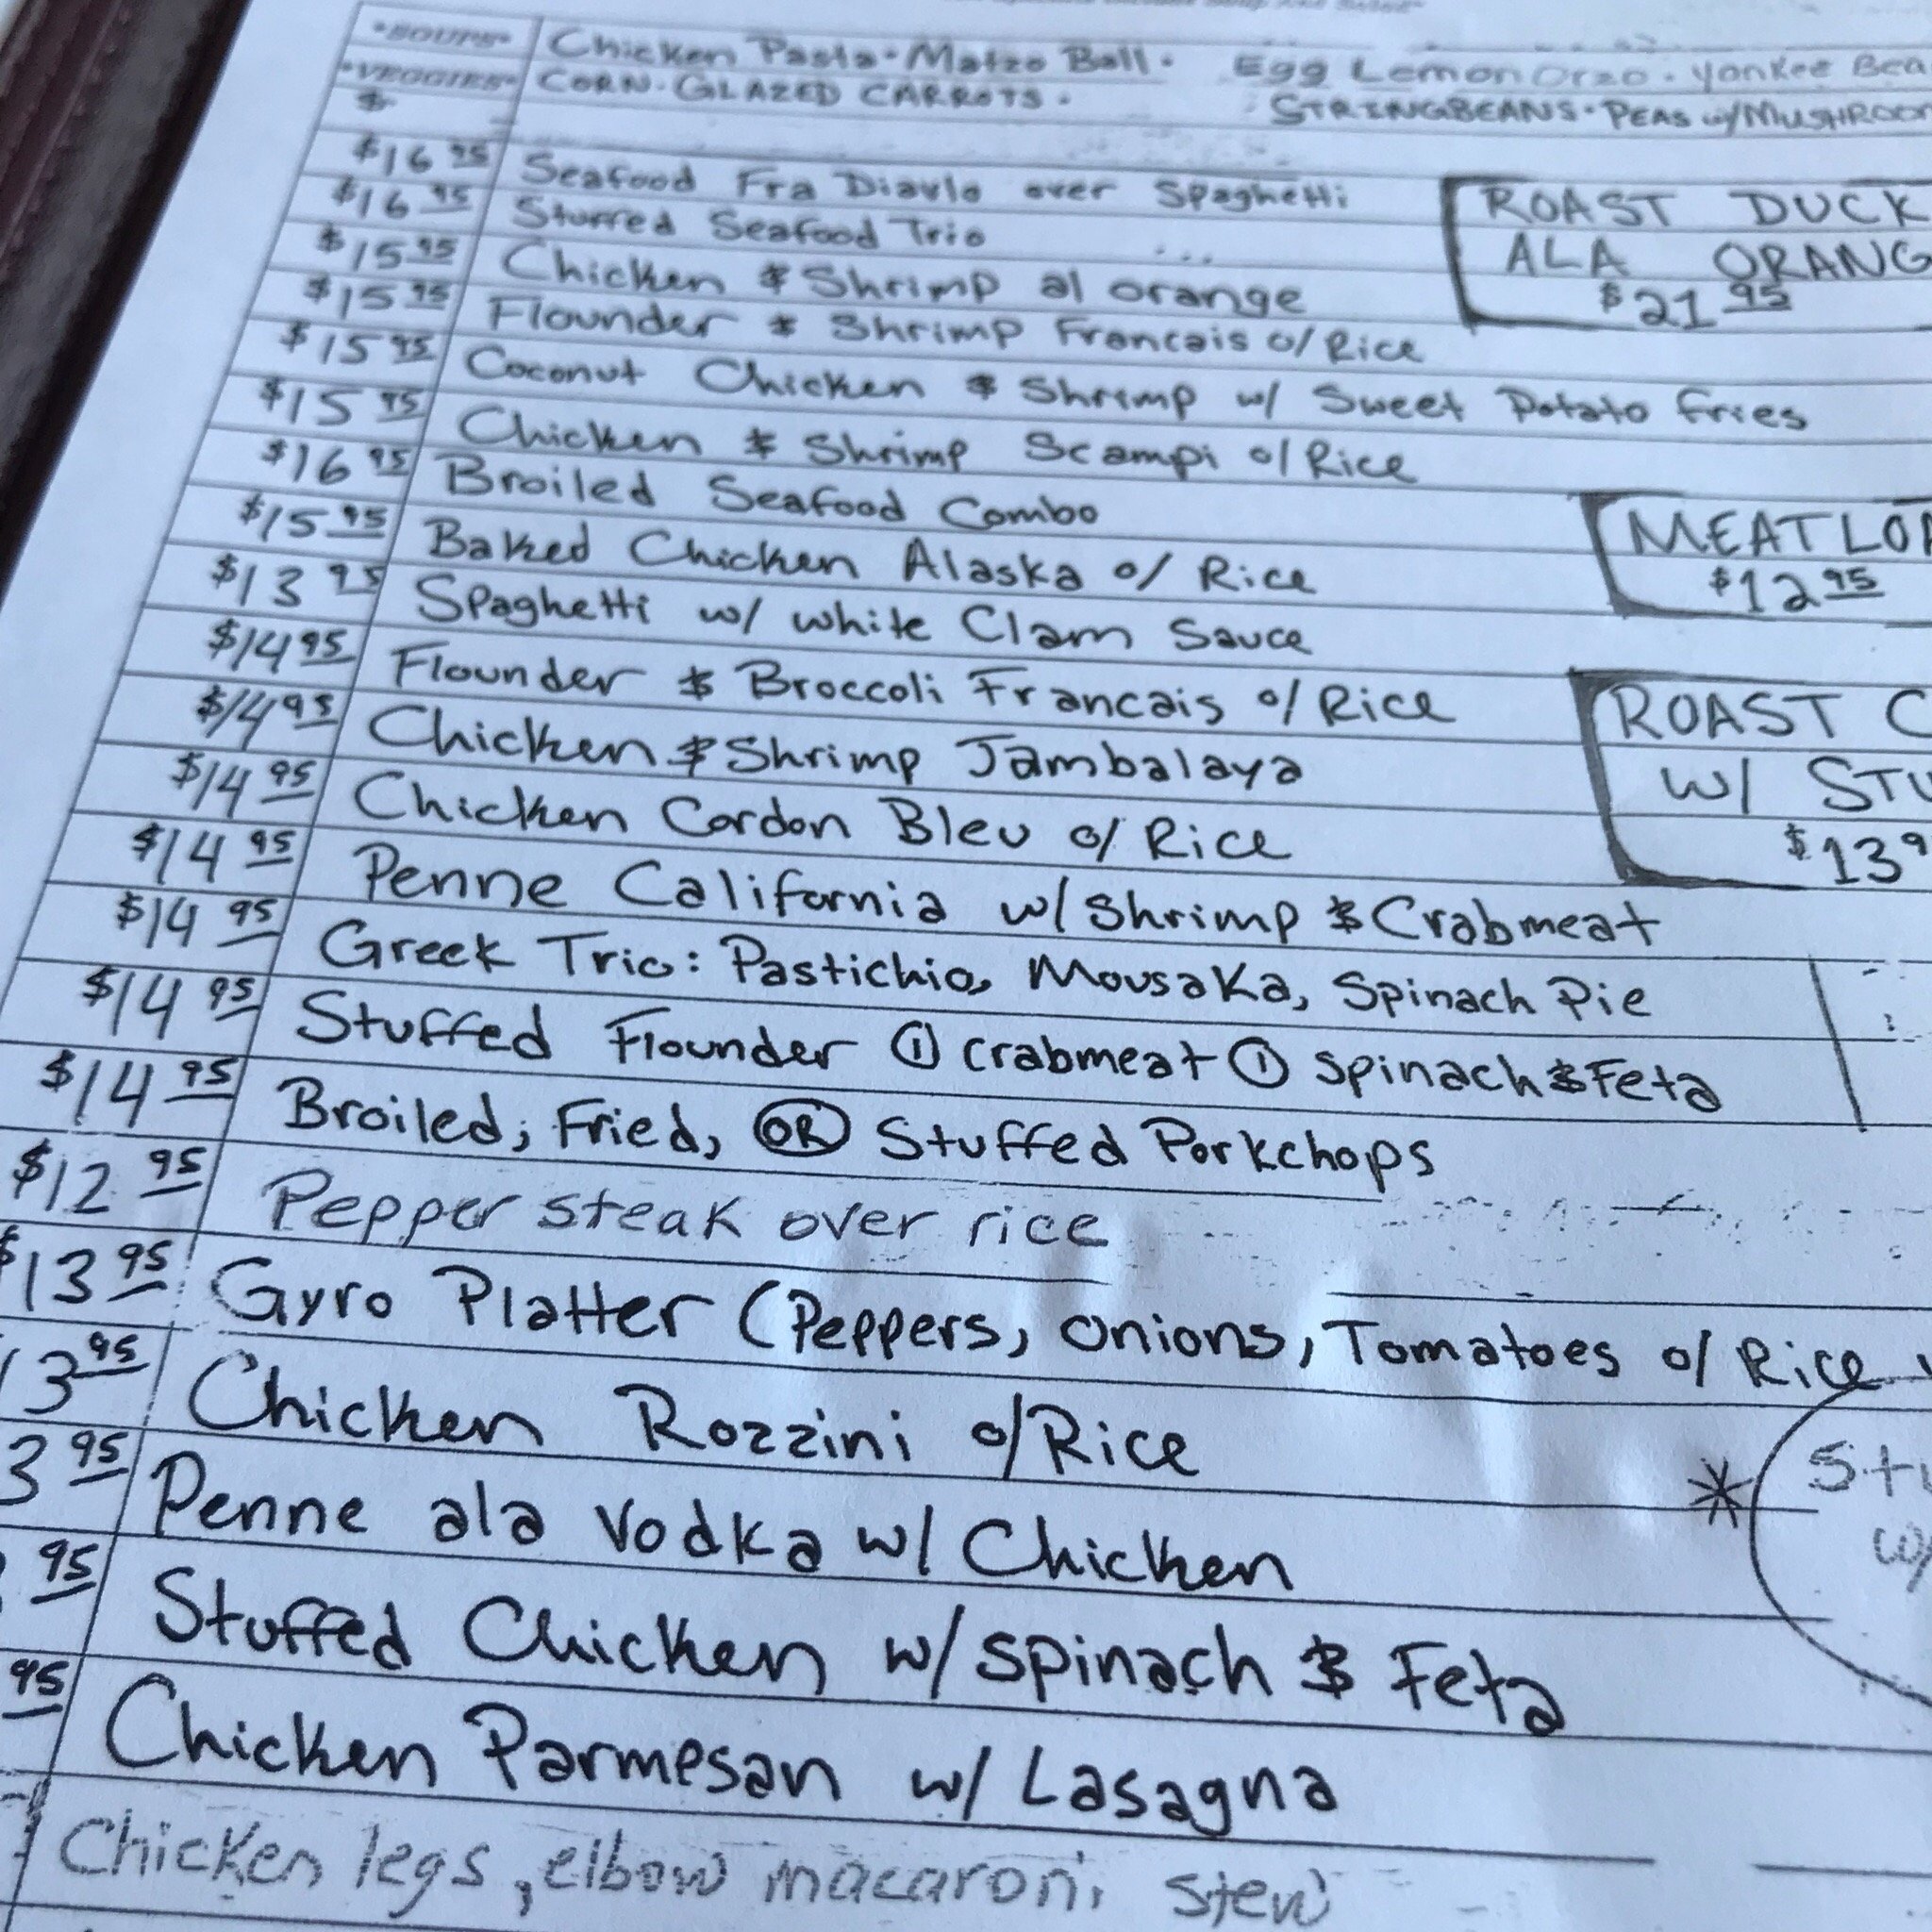 *SOUPS* Chicken Pasta · Matzo Ball · Egg Lemon Orzo · Yankee Bea
*VEGGIES* CORN · GLAZED CARROTS · STRINGBEANS · PEAS w/MUSHROO
$
$16 95 Seafood Fra Diavlo over Spaghetti
$16 95 Stuffed Seafood Trio
$15 95 Chicken & Shrimp al orange
$15 95 Flounder & Shrimp Francais o/ Rice
$15 95 Coconut Chicken & Shrimp w/ Sweet Potato fries
$15 95 Chicken & Shrimp Scampi o/ Rice
$16 95 Broiled Seafood Combo
$15 95 Baked Chicken Alaska o/ Rice
$13 95 Spaghetti w/ white Clam Sauce
$14 95 Flounder & Broccoli Francais o/ Rice
$14 95 Chicken & Shrimp Jambalaya
$14 95 Chicken Cordon Bleu o/ Rice
$14 95 Penne California w/ Shrimp & Crabmeat
$14 95 Greek Trio: Pastichio, Mousaka, Spinach Pie
$14 95 Stuffed Flounder ① crabmeat ① Spinach & Feta
$14 95 Broiled, Fried, OR Stuffed Porkchops
$12 95 Pepper steak over rice
$13 95 Gyro Platter (Peppers, onions, Tomatoes o/ Rice
13 95 Chicken Rozzini o/ Rice
3 95 Penne ala Vodka w/ Chicken
95 Stuffed Chicken w/ spinach & Feta
95 Chicken Parmesan w/ Lasagna
Chicken legs, elbow macaroni stew
ROAST DUCK
ALA ORANG
$21 95
MEATLOA
$12 95
ROAST C
w/ STU
$13 9
* Stu
w/